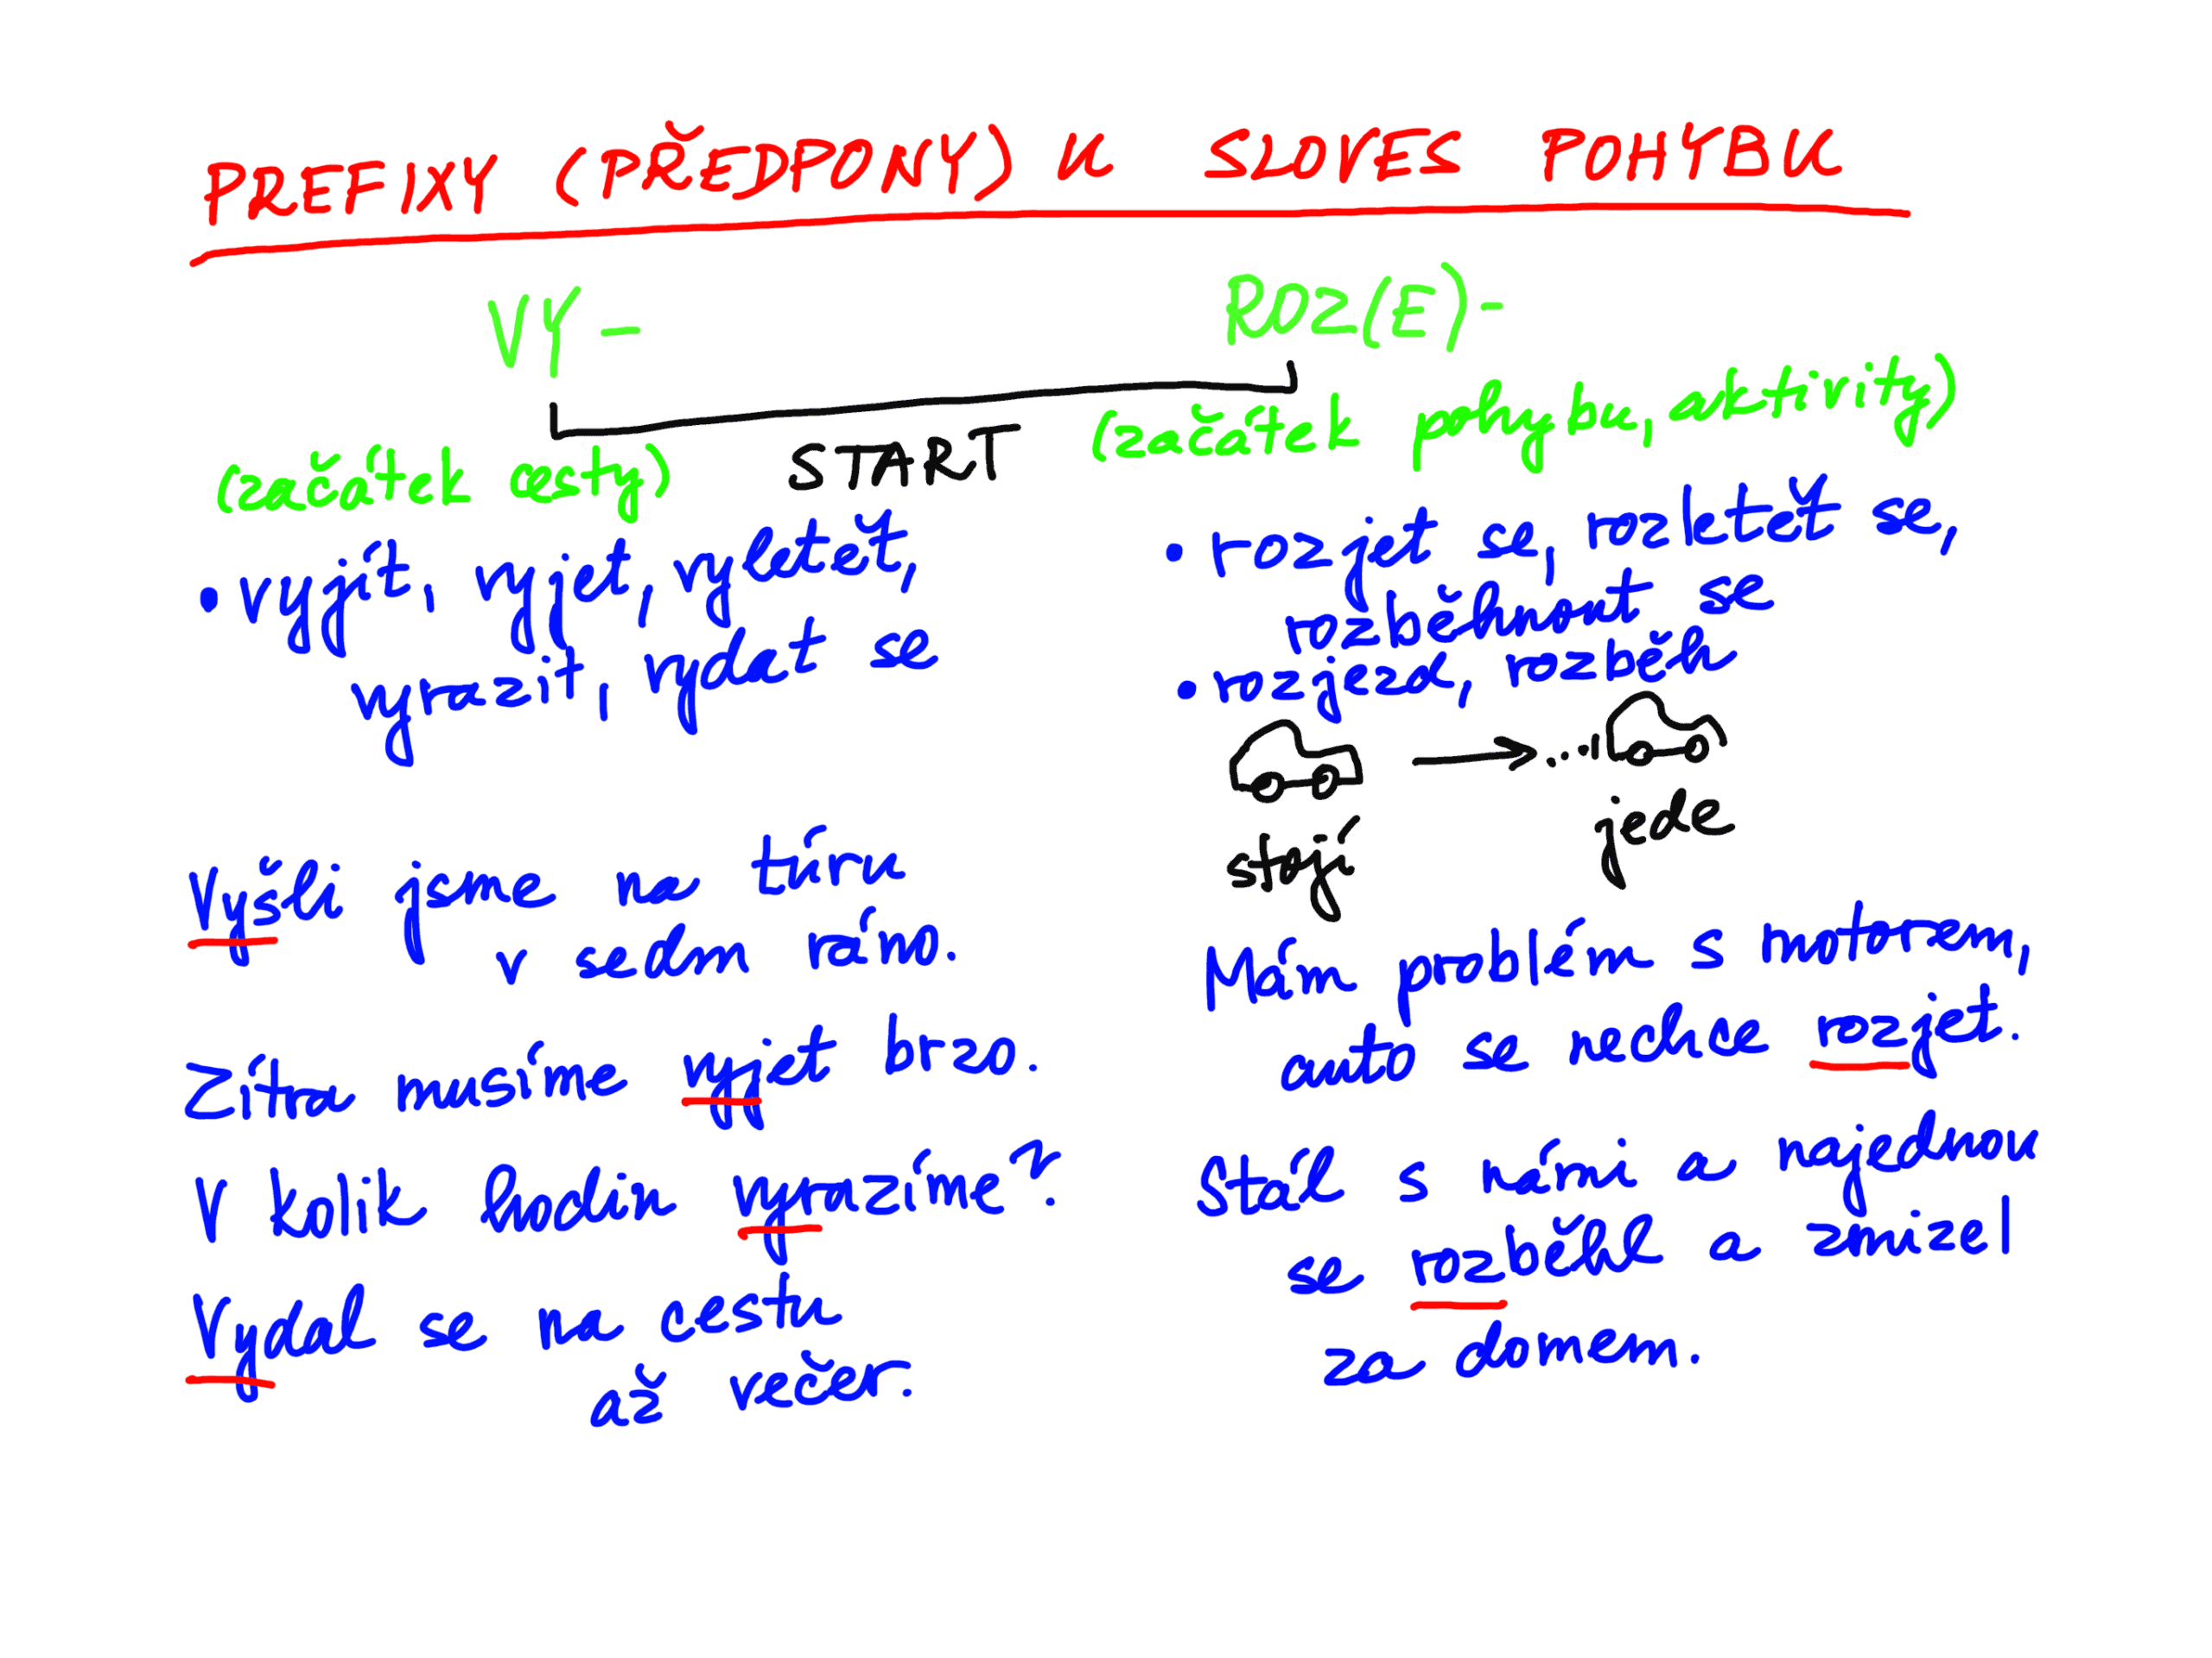 PREFIXY (PŘEDPONY) U SLOVES POHYBU
VY-
(začátek cesty)
START
• vyjít, vyjet, vyletět,
vyrazit, vydat se
Vyšli jsme na túru
v sedm ráno.
Zítra musíme vyjet brzo.
V kolik hodin vyrazíme?
Vydal se na cestu
až večer.
ROZ(E)-
(začátek pohybu, aktivity)
• rozjet se, rozletět se,
rozběhnout se
• rozjezd, rozběh
stojí
jede
Mám problém s motorem,
auto se nechce rozjet.
Stál s námi a najednou
se rozběhl a zmizel
za domem.